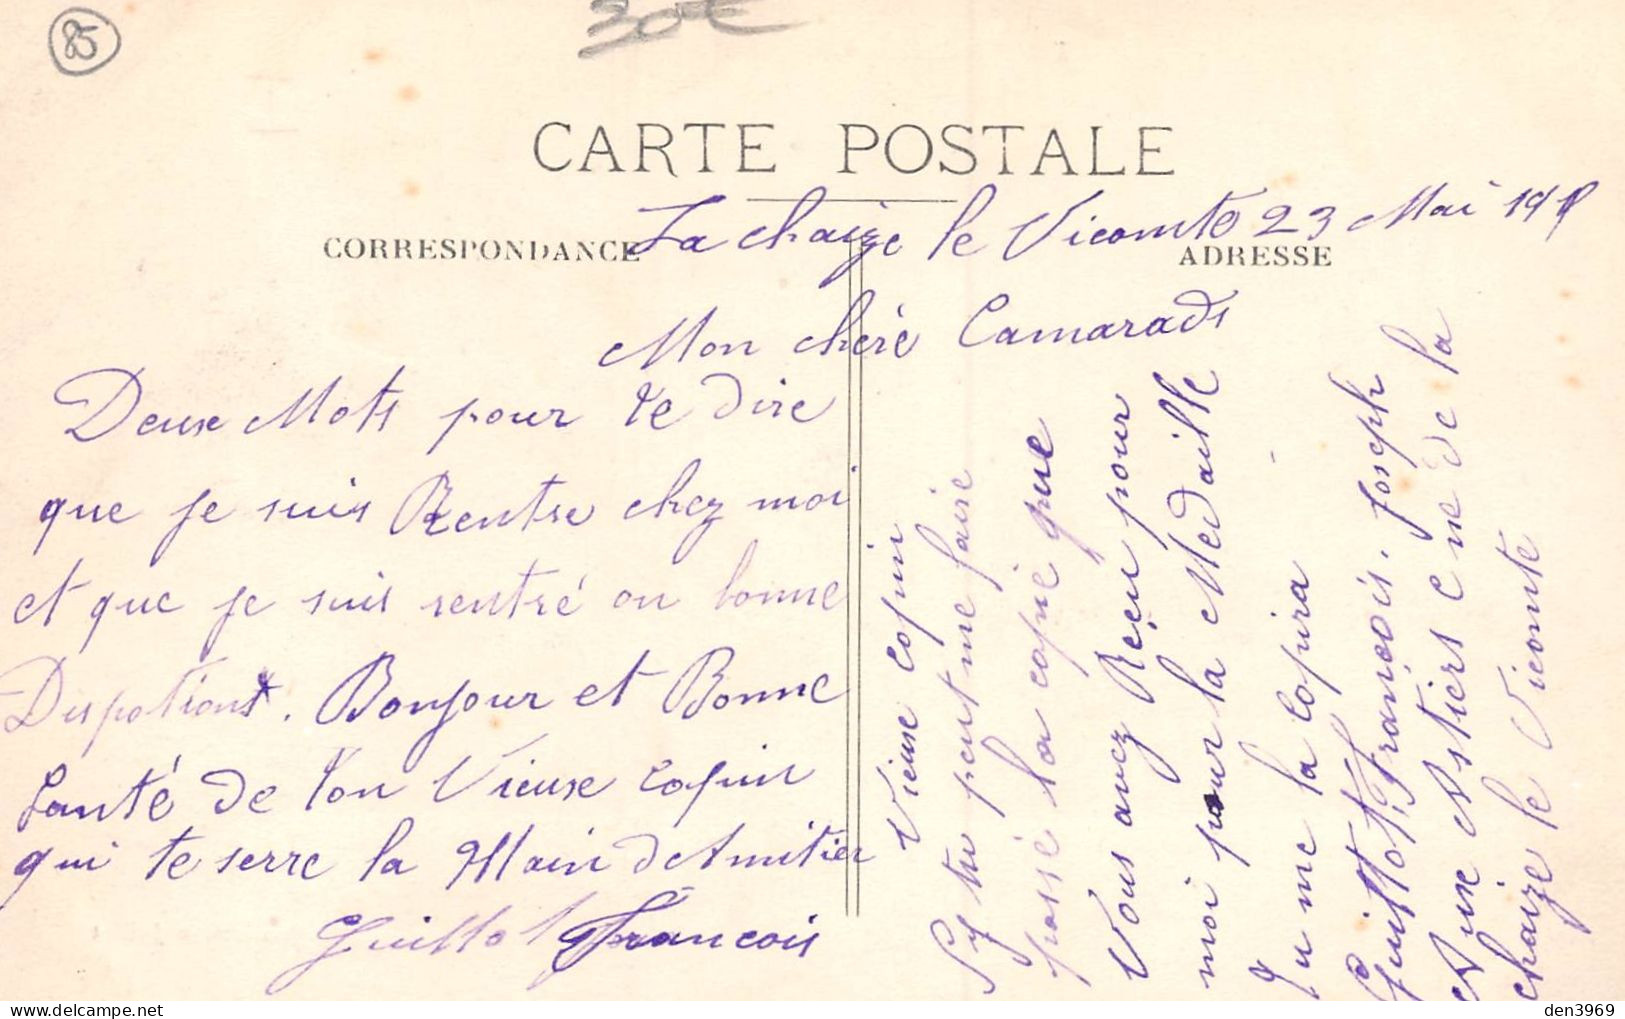 85
30€
CARTE POSTALE
CORRESPONDANCE
ADRESSE
La chaize le Vicomte 23 Mai 191
Mon chère Camarade
Deux Mots pour te dire
que je suis Rentre chez moi
et que je suis rentré on bonne
Dispotions. Bonjour et Bonne
Santé de ton Vieux copin
qui te serre la Main d'Amitier
Guillot Francois
Vieux copin
Sy tu peut me faire
passé la copie que
Vous avez Reçu pour
moi pour la Medaille
Tu me la copira
Guillot, François. Joseph
Aux Astiers cne de la
chaize le Vicomte
den3969